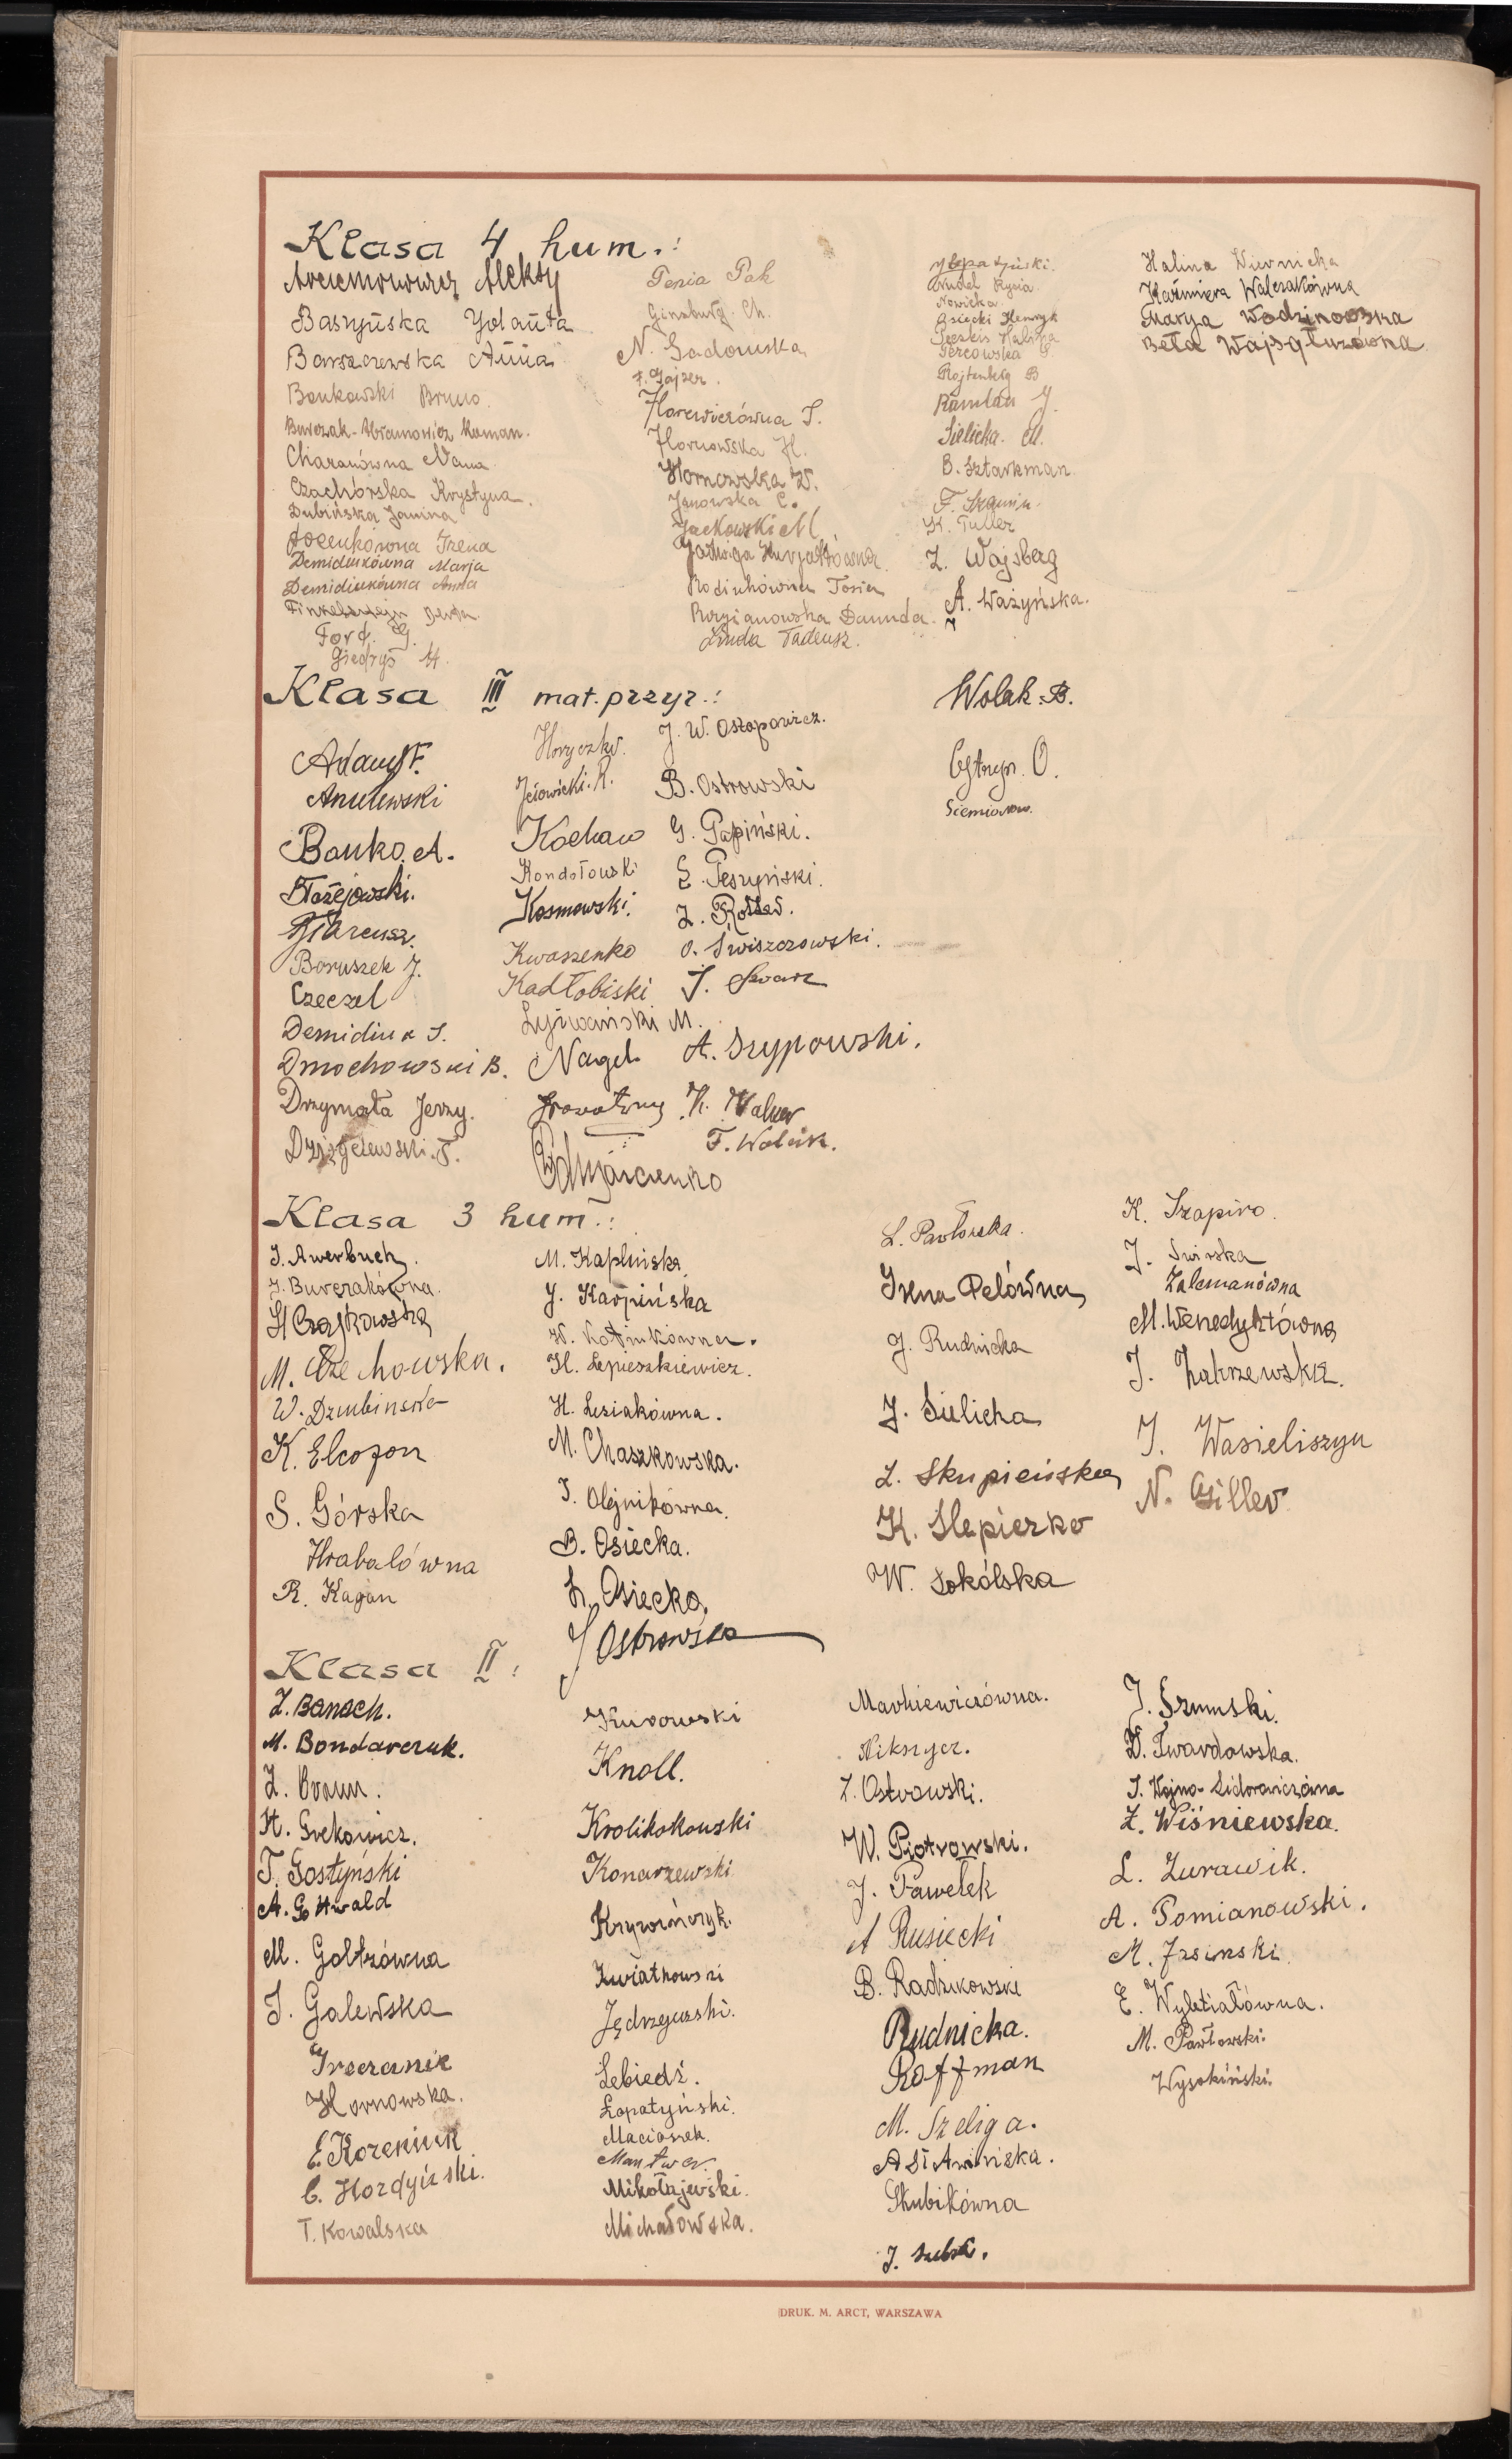 Klasa 4 hum.:
Aleksy
Baszyńska Jolanta
Barszczewska Anna
Bańkowski Bruno.
Burczak-Abramowicz Roman.
Charanówna
Czachórska Krystyna.
Dubińska Janina
Irena
Demidiukówna Marja
Demidiukówna Anna
Finkelsztejn
Ford. G.
Giedryś H.
Penia Pak
Ginzburg. Ch.
N. Gadomska
F. Gajzer.
Horewiczówna S.
Hornowska H.
Hornowska W.
Janowska C.
Jackowski M
Jadwiga
Rodinkówna Tosia
Danuda.
Tadeusz.
Nudel Rysia
Nowicka
Osiecki Henryk
Halina
Rojtenberg B
Ramlau J.
Sielicka. M.
B. Sztarkman
F. Szamin.
K. Tuller
Z. Wajsberg
A. Ważyńska.
Halina Wiernicka
Kaźmiera Walczakówna
Marya Wodzinowska
Bela Wajsgluzówna
Klasa III mat.przyr.:
Adamy F.
Bańko. A.
Błażejowski.
Boruszek J.
Czeczel
Demidiuk S.
Dmochowski B.
Drzymała Jerzy.
Horyczko.
Jełowicki. R.
Kochaw
Kondołowski
Kosmowski.
Kwaszenko
Kadłobiski
M.
Nagel.
J. W. Ostapowicz.
B. Ostrowski
G. Papiński.
E. Peszyński.
Z. Rotter.
O. Świszczowski.
J. Szwarc
A. Szypowski.
K. Walter
F. Wolak.
Wolak. B.
Cytryn. O.
Siemionow.
Klasa 3 hum.:
J. Awerbuch.
J. Burczakówna.
H Czajkowska
M. Czechowska.
W. Dziubińska
K. Elcofon
S. Górska
Hrabalówna
R. Kagan
M. Kaplińska
J. Karpińska
W. Kotnikówna.
H. Lepieszkiewicz.
H. Lesiakówna.
M. Chaszkowska.
J. Olejnikówna.
B. Osiecka.
L. Osiecka.
J Ostrowska
L. Pawłowska.
Irena Pelówna
J. Rudnicka
J. Sielicka
Z. Skupieńska
K. Ślepierko
W. Sokólska
K. Szapiro.
J. Świrska
Zalcmanówna
M. Wenedyktówna
J. Zakrzewska.
J. Wasieliszyn
N. Giller
Klasa II:
Z. Banach.
M. Bondarczuk.
Z. Braun.
H. Grekowicz.
T. Gostyński
A. Gottwald
M. Goltzówna
J. Galewska
Greczanik
Hornowska.
E. Kozeniuk
C. Hordyński.
T. Kowalska
Kurowski
Knoll.
Krolikokowski
Konarzewski
Krywińczyk.
Kwiatkowski
Jędrzejewski.
Łebiedź.
Łopatyński.
Maciaszek.
Mantwer.
Mikołajewski.
Michałowska.
Markiewiczówna.
Nikszycz.
Z. Ostrowski.
W. Piotrowski.
J. Pawełek
A Rusiecki
B. Radzikowski
Rudnicka.
Roffman
M. Szeliga.
A Sławińska.
Skubikówna
J. Suba.
J. Szumski.
W. Twardowska.
J. Wojno-Sidorowiczówna
Z. Wiśniewska.
L. Żurawik.
A. Pomianowski.
M. Jasinski
E. Wybiałówna.
M. Pawłowski.
Wysokiński.
DRUK. M. ARCT, WARSZAWA